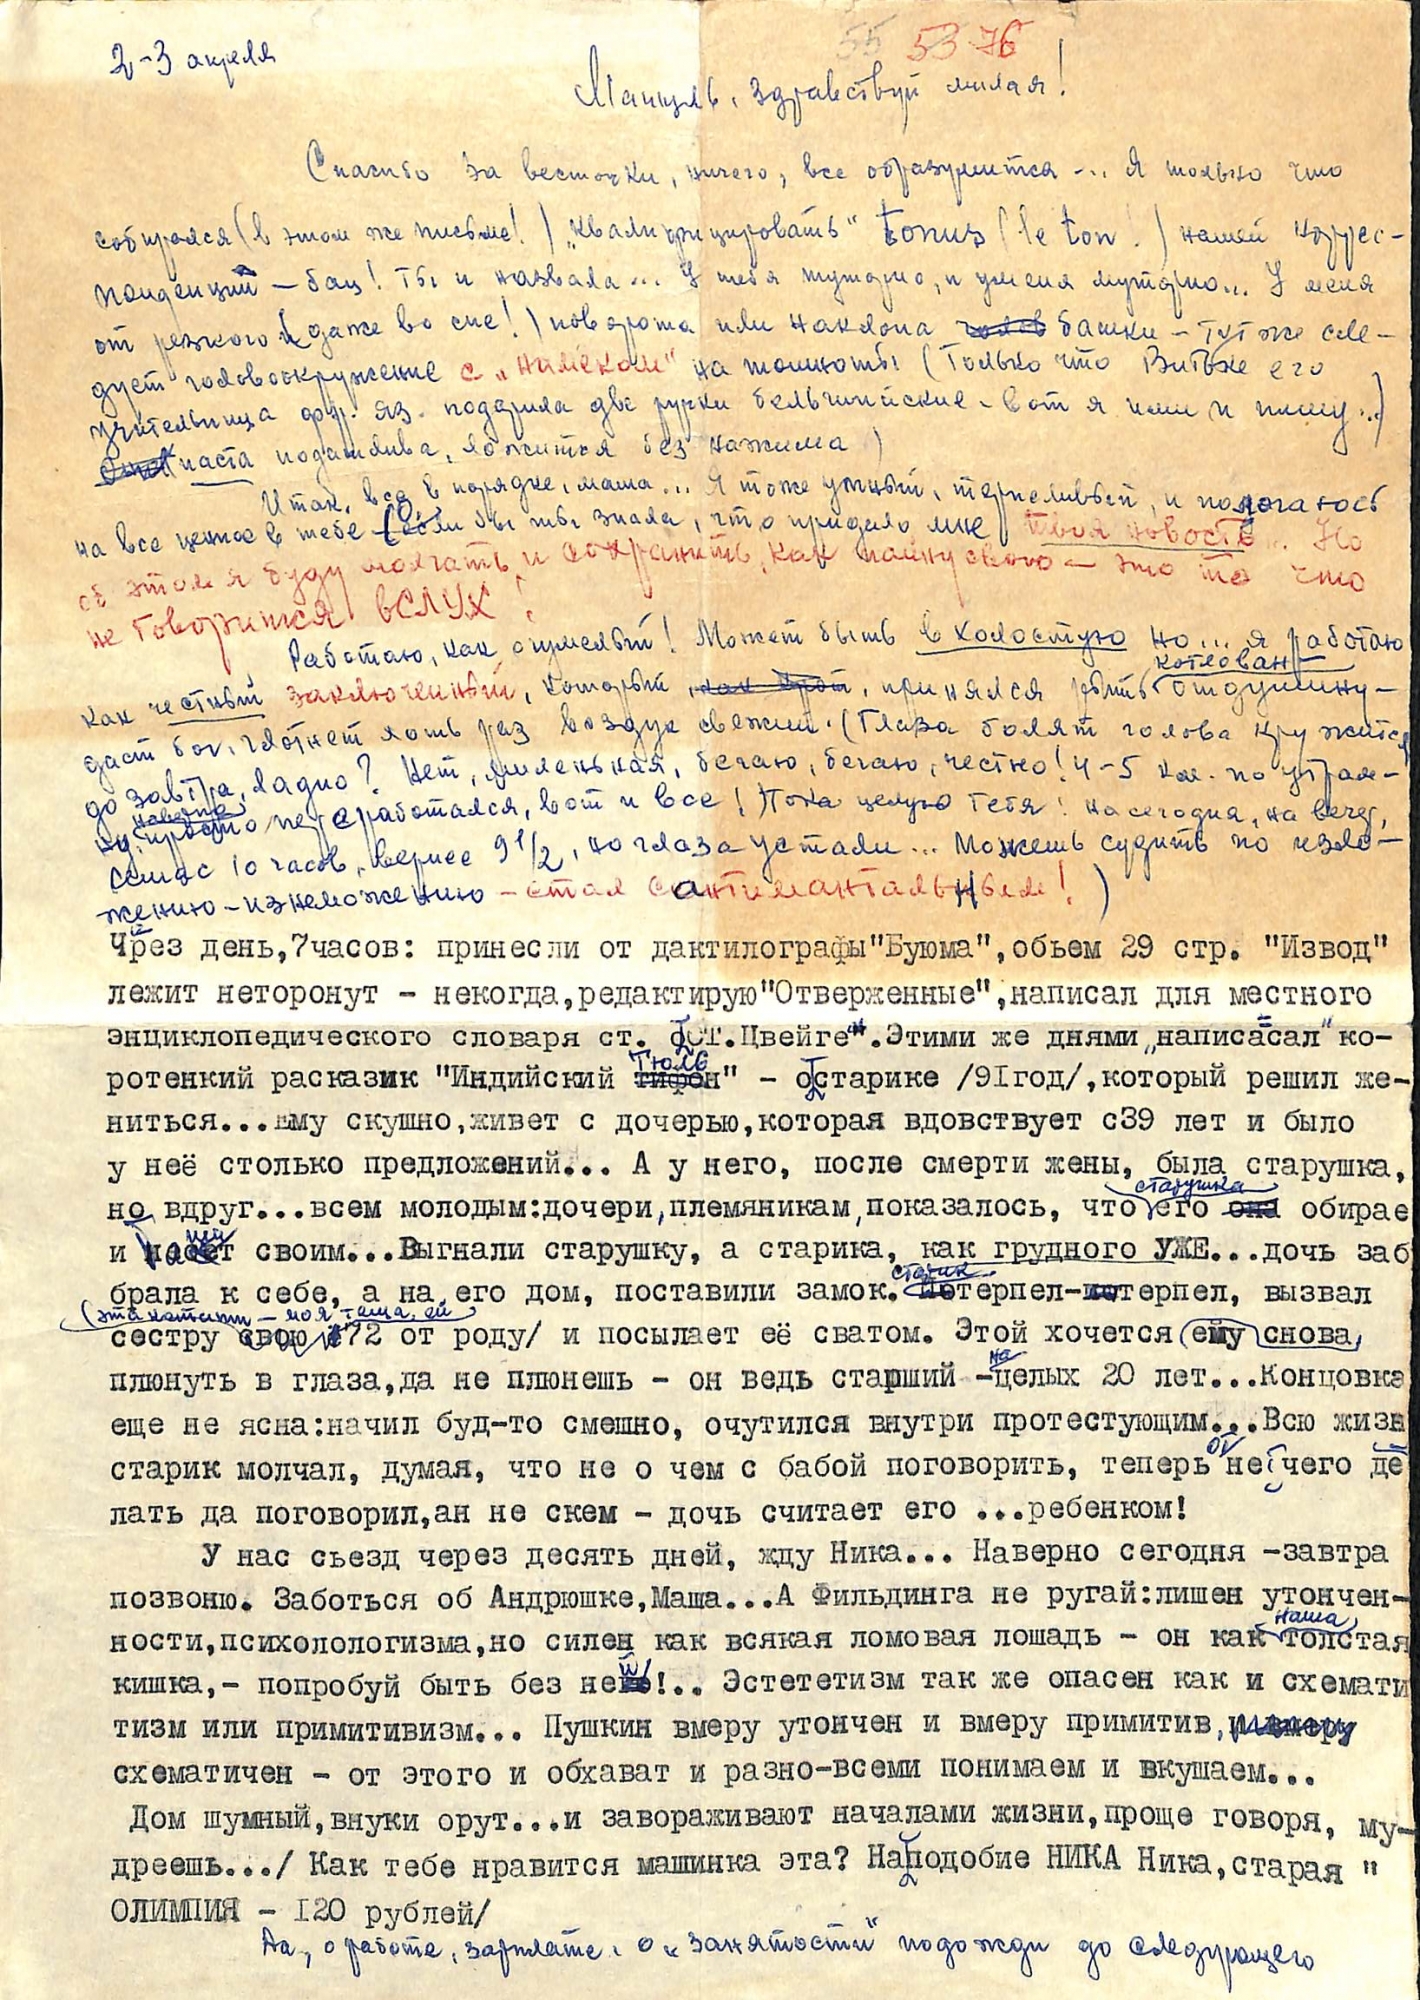 2-3 апреля
55 53-76
Манцуль, здравствуй милая!
Спасибо за весточки, ничего, все образумится... Я только что
собирался (в этом же письме!) „квалифицировать" tonus (le ton!) нашей коррес-
понденций — бац! Ты и назвала... У тебя муторно, и у меня муторно... У меня
от резкого (даже во сне!) поворота или наклона голов башки — тут же сле-
дует головокружение с „намёком" на тошноты (Только что Витьке его
учительница фр. яз. подарила две ручки бельгийские — вот я ими и пишу...)
паста податлива, ложится без нажима)
Итак, все в порядке, маша... Я тоже умный, терпеливый, и полагаюсь
на все ценное в тебе (если бы ты знала, что придало мне твоя новость... Но
об этом я буду молчать и сохранить, как тайну свою — это то что
не говорится вСЛУХ!
Работаю, как очумелый! Может быть в холостую но... я работаю
котлован —
как честный заключенный, который, как крот, принялся рыть отдушину —
даст бог, глотнет хоть раз воздух свежий. (Глаза болят голова кружится
до завтра, ладно? Нет, миленькая, бегаю, бегаю, честно! 4-5 км. по утрам —
наверно
ну, просто переработался, вот и все! Пока целую тебя! на сегодня, на вечер,
сейчас 10 часов, вернее 9 1/2, но глаза устали... Можешь судить по изло-
жению-изнеможению — стал сантиментальным!)
Чрез день,7часов: принесли от дактилографы"Буюма",обьем 29 стр. "Извод"
лежит неторонут - некогда,редактирую"Отверженные",написал для местного
энциклопедического словаря ст. оСТ.Цвейге".Этими же днями „написасал" ко-
Тюль
ротенкий расказик "Индийский тифон" - остарике /91год/,который решил же-
ниться...ему скушно,живет с дочерью,которая вдовствует с39 лет и было
у неё столько предложений... А у него, после смерти жены, была старушка,
старушка
но вдруг...всем молодым:дочери,племяникам,показалось, что его она обирае
и носет своим...Выгнали старушку, а старика, как грудного УЖЕ...дочь заб
старик
брала к себе, а на его дом, поставили замок. Потерпел-потерпел, вызвал
(эта кстати — моя теща, ей
сестру свою /72 от роду/ и посылает её сватом. Этой хочется ему снова,
на
плюнуть в глаза,да не плюнешь - он ведь старший -целых 20 лет...Концовка
еще не ясна:начил буд-то смешно, очутился внутри протестующим...Всю жизн
старик молчал, думая, что не о чем с бабой поговорить, теперь не чего де
лать да поговорил,ан не скем - дочь считает его ...ребенком!
У нас сьезд через десять дней, жду Ника... Наверно сегодня -завтра
позвоню. Заботься об Андрюшке,Маша...А Фильдинга не ругай:лишен утончен-
наша
ности,психопологизма,но силен как всякая ломовая лошадь - он как толстая
кишка,- попробуй быть без ней!.. Эстететизм так же опасен как и схемати
тизм или примитивизм... Пушкин вмеру утончен и вмеру примитив, и вмеру
схематичен - от этого и обхават и разно-всеми понимаем и вкушаем...
Дом шумный,внуки орут...и завораживают началами жизни,проще говоря, му-
дреешь.../ Как тебе нравится машинка эта? Наподобие НИКА Ника,старая "
ОЛИМПИЯ - 120 рублей/
Аа, о работе, зарплате, о „занятости" подожди до следующего